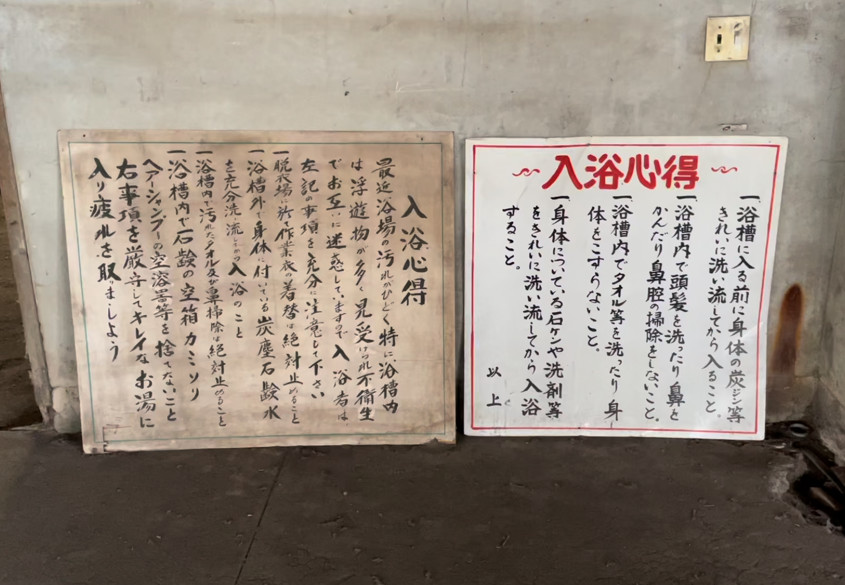 入浴心得
最近浴場の汚れがひどく特に、浴槽内
は浮遊物が多く見受けられ不衛生
でお互いに迷惑していますので入浴者は
左記の事項を充分に注意して下さい
一脱衣場に於て作業衣の着替は絶対止めること
一浴槽外で身体に付いている炭塵石鹸水
を充分洗い流してから入浴のこと
一浴槽内で汚れたタオル及び鼻掃除は絶対止めること
一浴槽内で石鹸の空箱カミソリ
ヘアーシャンプーの空容器等を捨てないこと
右事項を厳守してキレイなお湯に
入り疲れを取りましよう
入浴心得
一、浴槽に入る前に身体の炭ジン等
きれいに洗い流してから入ること。
一、浴槽内で頭髪を洗ったり鼻を
かんだり鼻腔の掃除をしないこと。
一、浴槽内でタオル等を洗ったり身
体をこすらないこと。
一、身体についている石ケンや洗剤等
をきれいに洗い流してから入浴
すること。
以上